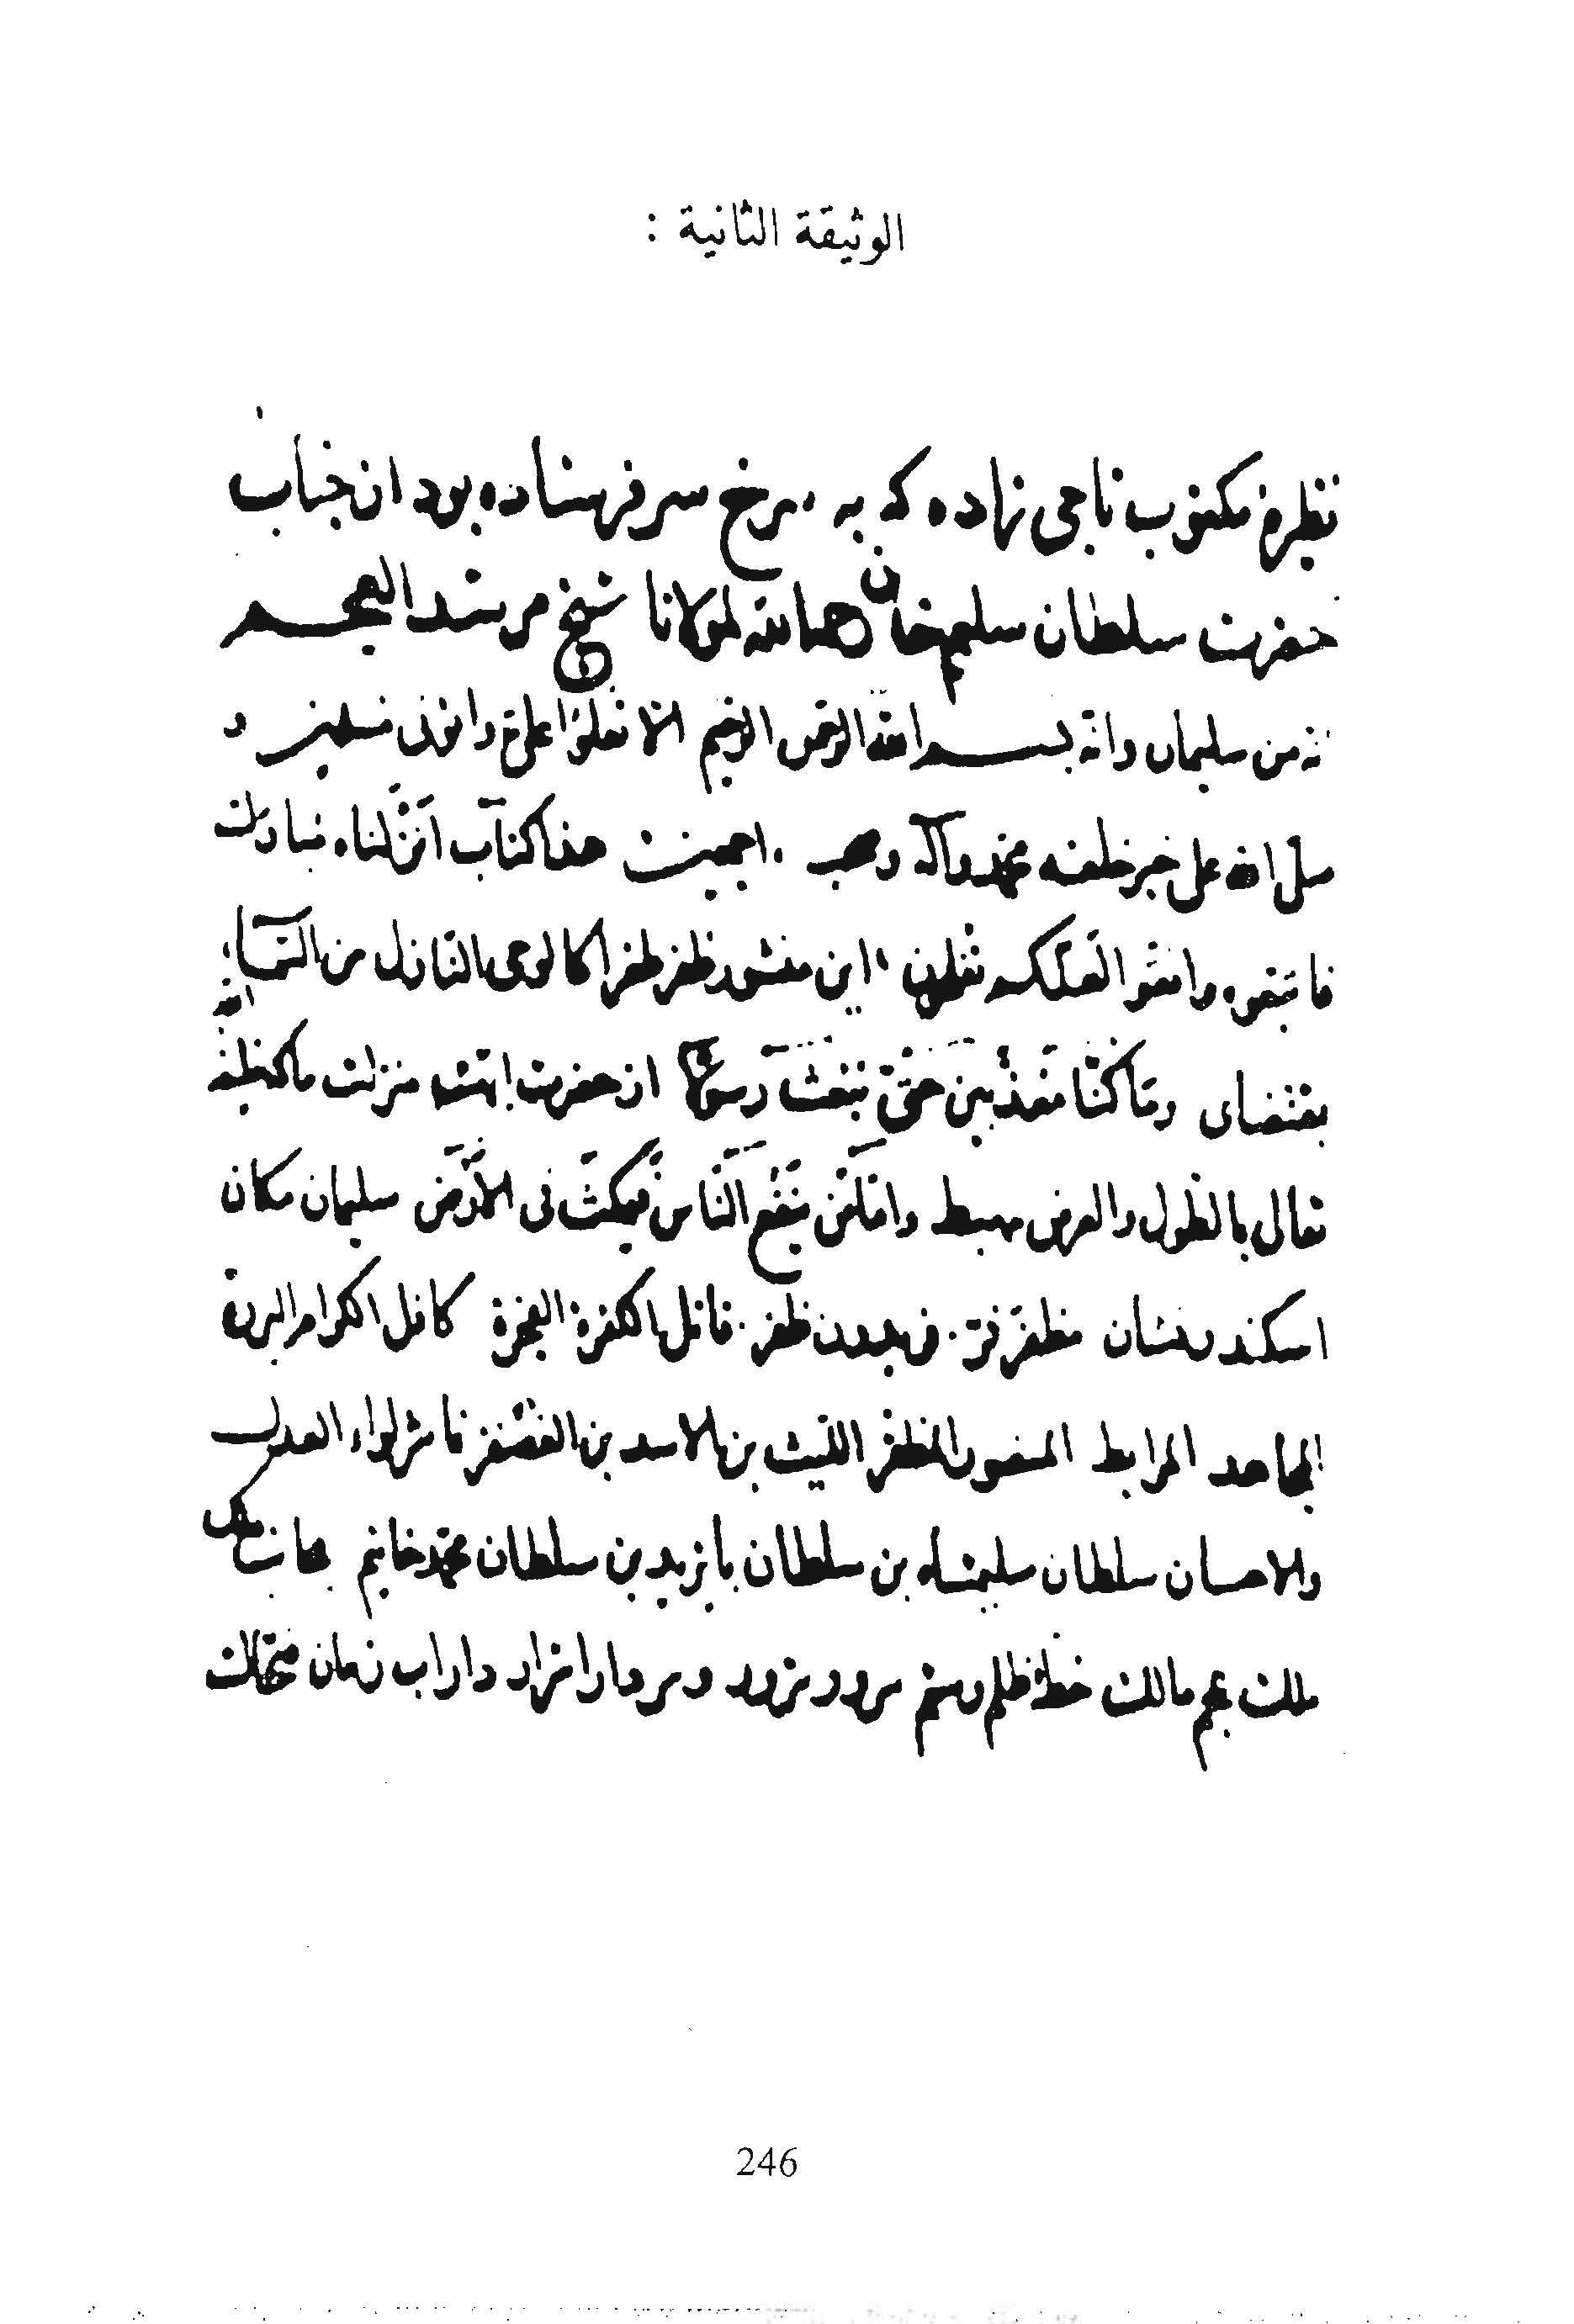 الوثيقة الثانية :
نظيره مكتوب ناجى نهاده كه به سرخ سر فرستاده بود از جناب
حضرت سلطان سليم خان لمولانا شيخ مرشد العجم
انه من سليمان وانه بسم الله الرحمن الرحيم الا تعلوا على واتونى مسلمين و
صلى الله على خير خلقه محمد وآله وصحبه اجمعين هذا كتاب انزلناه مبارك
فاتبعوه واتقوا لعلكم اين منشور ظفر طغرا كالوحى النازل من السماء
بمقتضاى وما كنا معذبين حتى نبعث رسولا از حضرت ابهت منزلت ما كه خليفة الله
تعالى بالطول والعرض مهبط واما ما ينفع الناس فيمكث فى الارض سليمان مكان
اسكندر نشان مظفر فر فريدون ظفر قاتل الكفرة الفجرة كافل الكرام البررة
المجاهد المرابط المنصور المظفر الليث بن الاسد بن الغضنفر ناشر لواء العدل
والاحسان سلطان سليمشاه بن سلطان بايزيد بن سلطان محمد خانيم بجانب
ملك عجم مالك خطه ظلم وستم سرور و سردار داراب زمان ضحاك
246